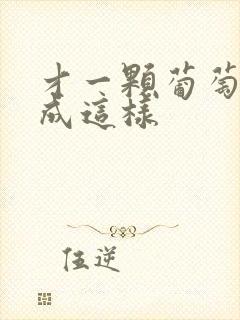 才一顆葡萄
成這樣
伍逆